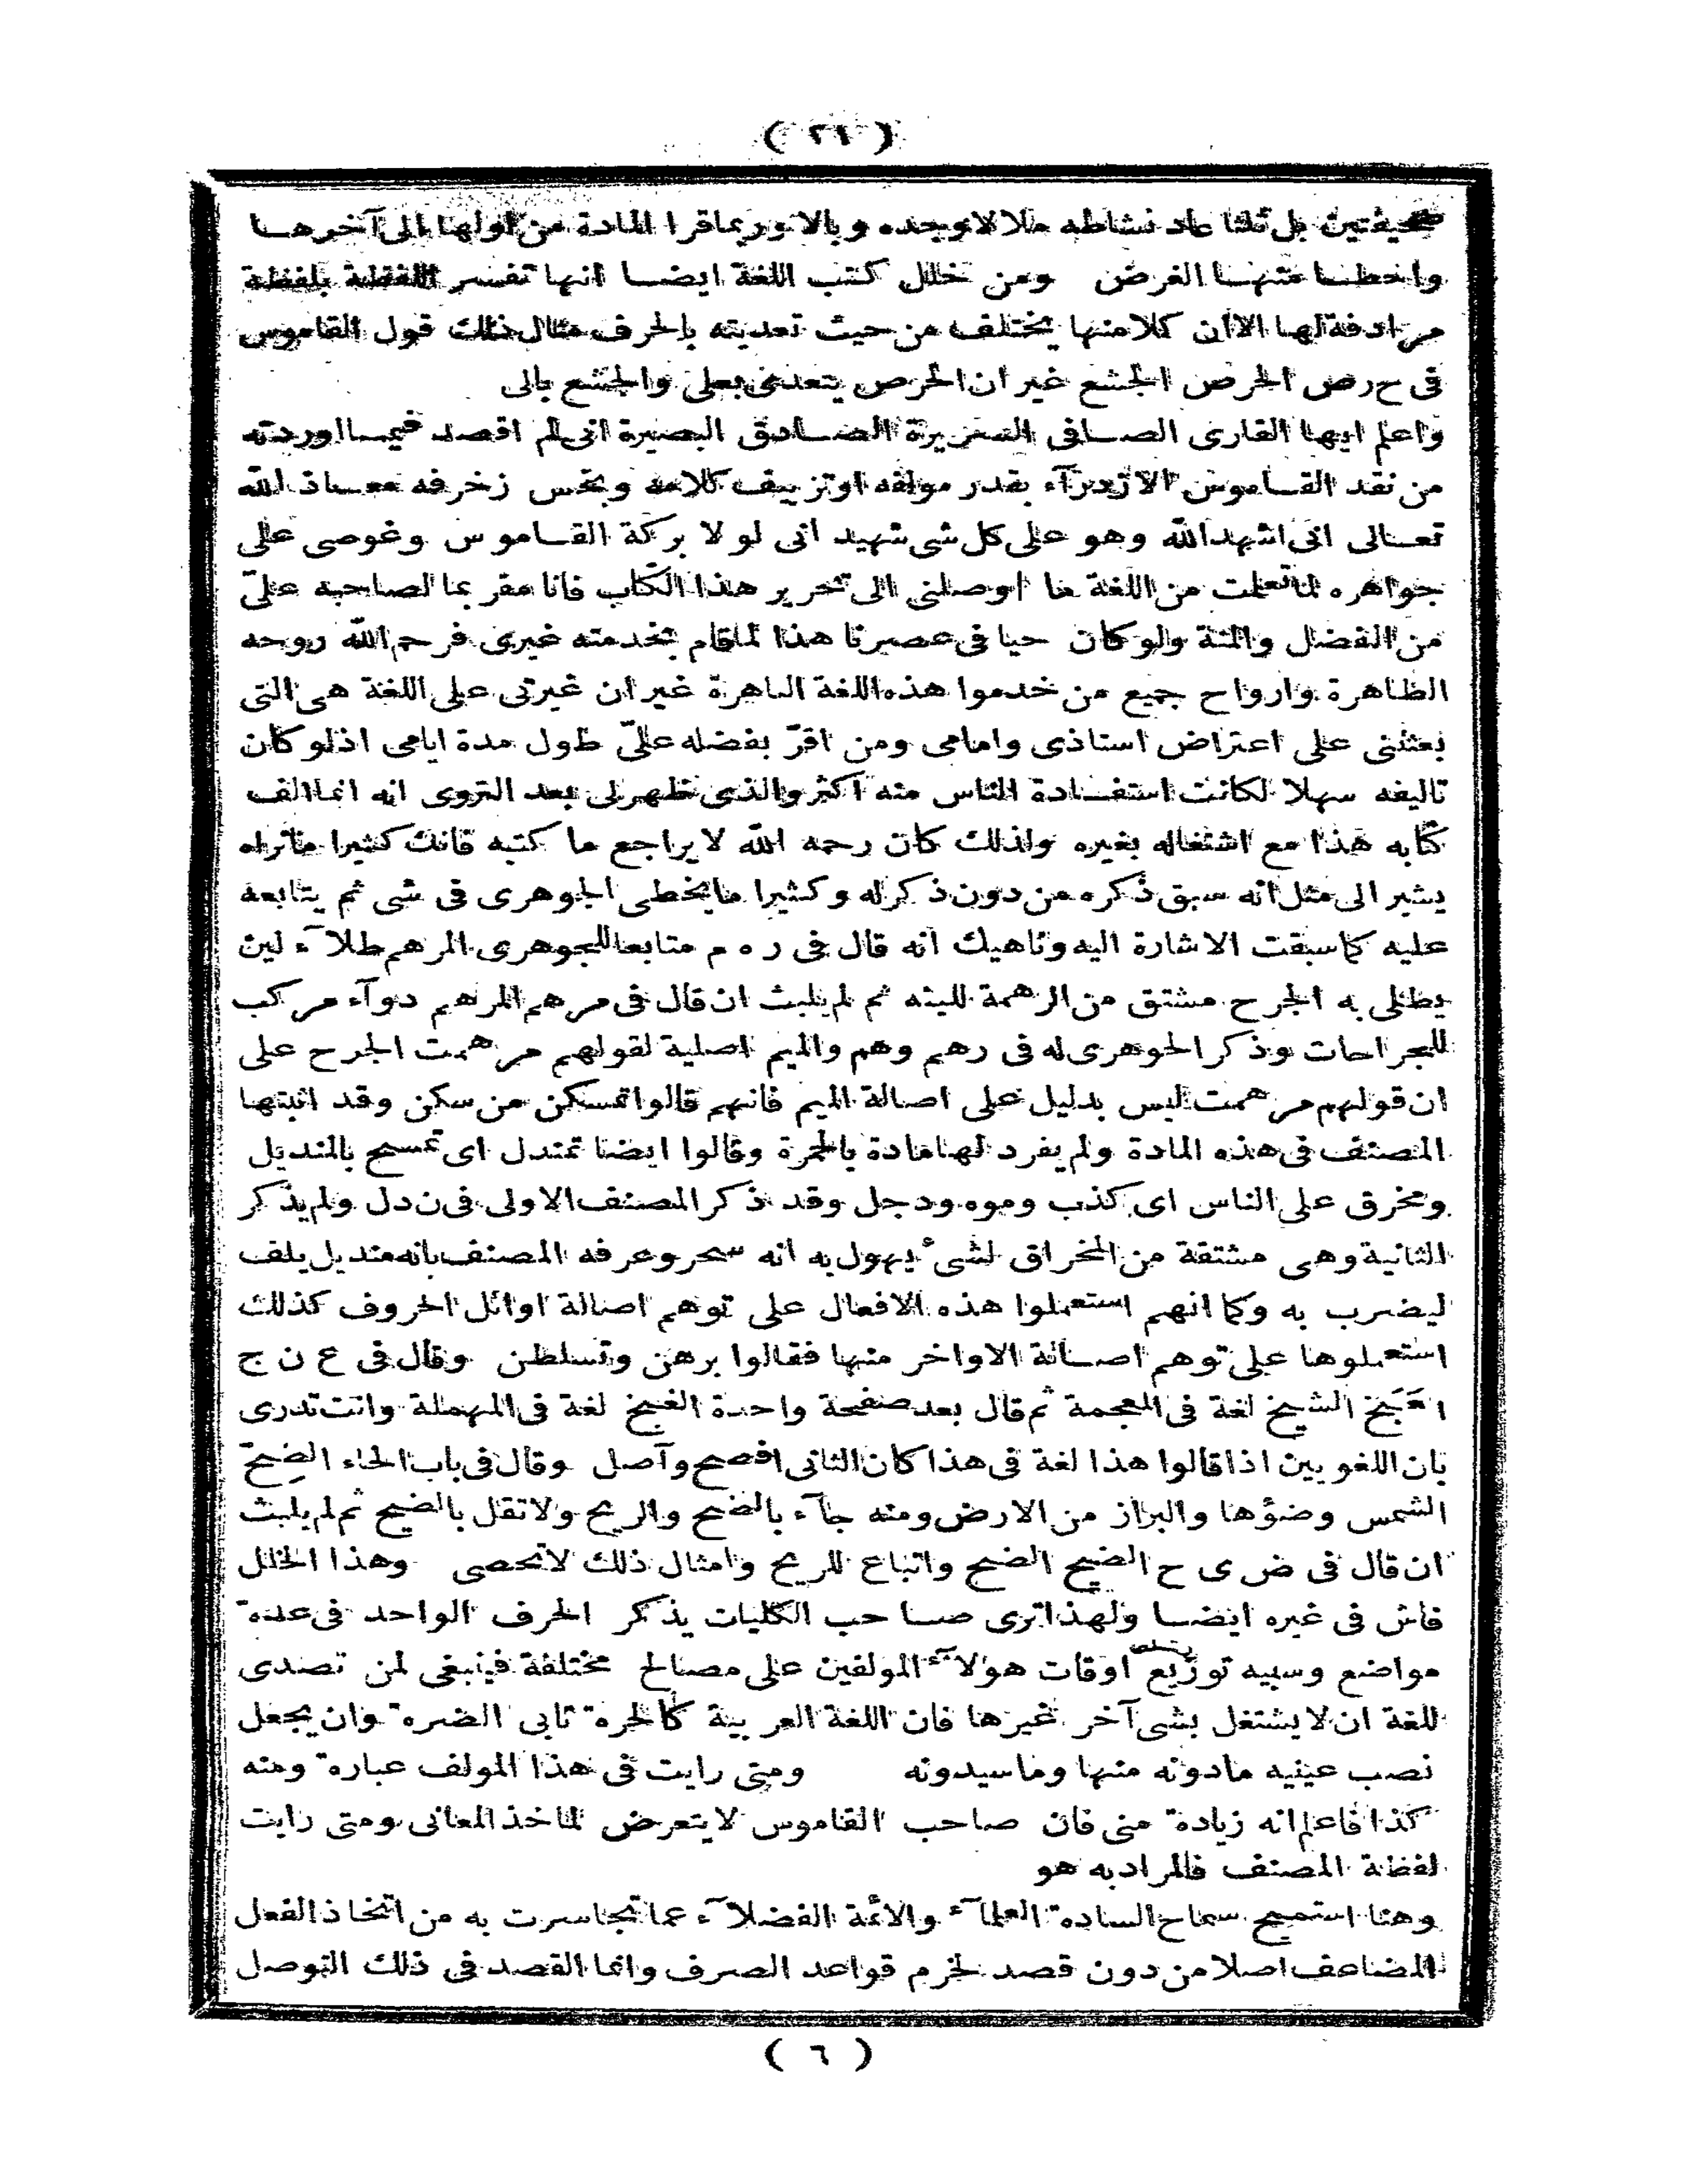 ( ٢١ )
صحيفتين بل ثلثا عاد نشاطه ملالا ووجده وبالا وربما قرا المادة من اولها الى آخرها
واخطا منها الغرض ومن خلل كتب اللغة ايضا انها تفسر اللفظة بلفظة
مرادفة لها الا ان كلا منها يختلف من حيث تعديته بالحرف مثال ذلك قول القاموس
فى ح ر ص الحرص الجشع غير ان الحرص يتعدى بعلى والجشع بالى
واعلم ايها القارى الصافى السريرة الصادق البصيرة انى لم اقصد فيما اوردته
من نقد القاموس الازدرآء بقدر مولفه او تزييف كلامه وبخس زخرفه معاذ الله
تعالى انى اشهد الله وهو على كل شى شهيد انى لو لا بركة القاموس وغوصى على
جواهره لما تعلمت من اللغة ما اوصلنى الى تحرير هذا الكتاب فانا مقر بما لصاحبه علىّ
من الفضل والمنة ولو كان حيا فى عصرنا هذا لما قام بخدمته غيرى فرحم الله روحه
الطاهرة وارواح جميع من خدموا هذه اللغة الباهرة غير ان غيرتى على اللغة هى التى
بعثتنى على اعتراض استاذى وامامى ومن اقرّ بفضله علىّ طول مدة ايامى اذ لو كان
تاليفه سهلا لكانت استفادة الناس منه اكثر والذى ظهر لى بعد التروى انه انما الف
كتابه هذا مع اشتغاله بغيره ولذلك كان رحمه الله لا يراجع ما كتبه فانك كثيرا ما تراه
يشير الى مثل انه سبق ذكره من دون ذكر له وكثيرا ما يخطى الجوهرى فى شى ثم يتابعه
عليه كما سبقت الاشارة اليه وناهيك انه قال فى ر ه م متابعا للجوهرى المرهم طلآء لين
يطلى به الجرح مشتق من الرهمة للينه ثم لم يلبث ان قال فى مرهم المرهم دوآء مركب
للجراحات وذكر الجوهرى له فى رهم وهم والميم اصلية لقولهم مرهمت الجرح على
ان قولهم مرهمت ليس بدليل على اصالة الميم فانهم قالوا تمسكن من سكن وقد اثبتها
المصنف فى هذه المادة ولم يفرد لها مادة بالحمرة وقالوا ايضا تمندل اى تمسح بالمنديل
ومخرق على الناس اى كذب وموه ودجل وقد ذكر المصنف الاولى فى ن د ل ولم يذكر
الثانية وهى مشتقة من المخراق لشىء يهول به انه سحر وعرفه المصنف بانه منديل يلف
ليضرب به وكما انهم استعملوا هذه الافعال على توهم اصالة اوائل الحروف كذلك
استعملوها على توهم اصالة الاواخر منها فقالوا برهن وتسلطن وقال فى ع ن ج
العَنَج الشيخ لغة فى المعجمة ثم قال بعد صفحة واحدة الغنج لغة فى المهملة وانت تدرى
بان اللغويين اذا قالوا هذا لغة فى هذا كان الثانى افصح وآصل وقال فى باب الحاء الضِحّ
الشمس وضؤها والبراز من الارض ومنه جآء بالضح والريح ولا تقل بالضيح ثم لم يلبث
ان قال فى ض ى ح الضيح الضح واتباع للريح وامثال ذلك لا تحصى وهذا الخلل
فاش فى غيره ايضا ولهذا ترى صاحب الكليات يذكر الحرف الواحد فى عدة
مواضع وسببه توزيع اوقات هولآء المولفين على مصالح مختلفة فينبغى لمن تصدى
للغة ان لا يشتغل بشى آخر غيرها فان اللغة العربية كالحرة تابى الضرة وان يجعل
نصب عينيه مادونه منها وما سيدونه ومتى رايت فى هذا المولف عبارة ومنه
كذا فاعلم انه زيادة منى فان صاحب القاموس لا يتعرض لماخذ المعانى ومتى رايت
لفظة المصنف فالمراد به هو
وهنا استميح سماح السادة العلمآء والائمة الفضلآء عما تجاسرت به من اتخاذ الفعل
المضاعف اصلا من دون قصد لخرم قواعد الصرف وانما القصد فى ذلك التوصل
( ٦ )